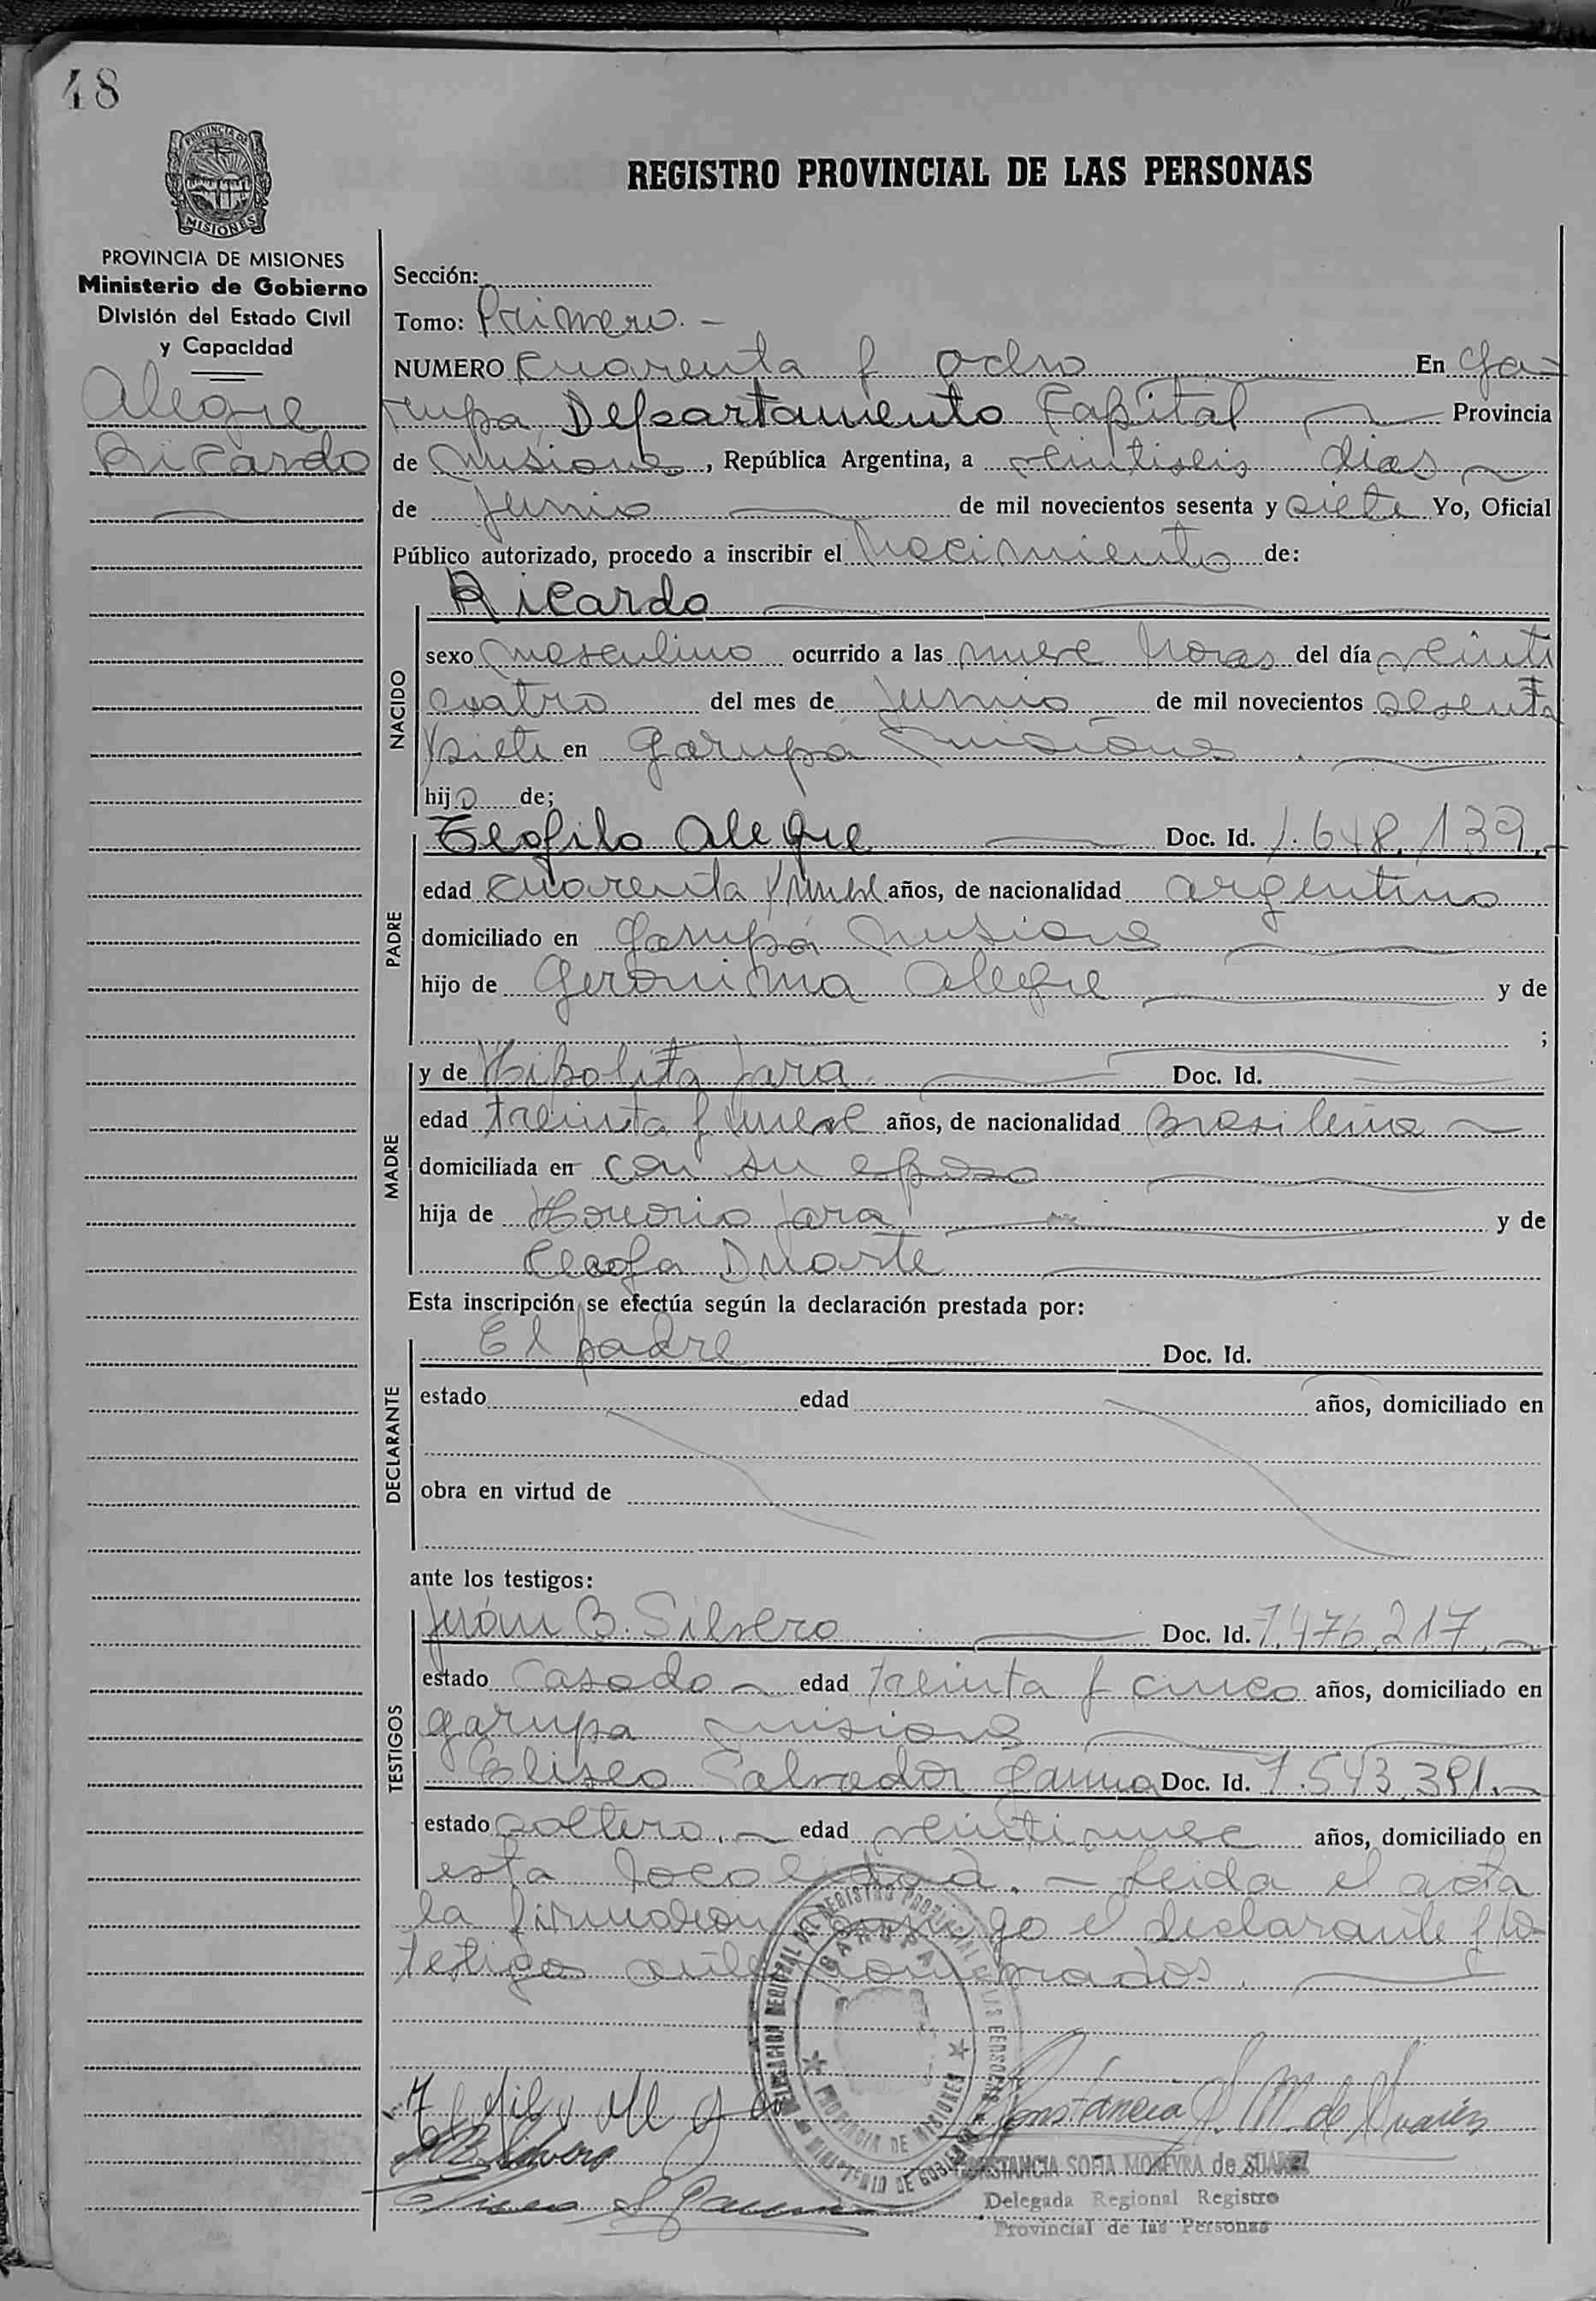 48
PROVINCIA DE
MISIONES
REGISTRO PROVINCIAL DE LAS PERSONAS
PROVINCIA DE MISIONES
Ministerio de Gobierno
División del Estado Civil
y Capacidad
Alegre
Ricardo
Sección:
Tomo: Primero.-
NUMERO cuarenta y ocho En Ga-
rupa, Departamento Capital Provincia
de Misiones, República Argentina, a veintiseis dias
de Junio de mil novecientos sesenta y siete Yo, Oficial
Público autorizado, procedo a inscribir el Nacimiento de:
Ricardo
NACIDO
sexo masculino ocurrido a las nueve horas del día veinti
cuatro del mes de Junio de mil novecientos sesenta
y siete en Garupa Misiones.
hijo de;
PADRE
Teofilo Alegre Doc. Id. 1.648.139.-
edad cuarenta y nueve años, de nacionalidad argentino
domiciliado en Garupá Misiones
hijo de Geronima Alegre y de
;
MADRE
y de Hipolita Jara Doc. Id.
edad treinta y nueve años, de nacionalidad brasileña
domiciliada en con su esposo
hija de Honorio Jara y de
Cleofa Duarte
Esta inscripción se efectúa según la declaración prestada por:
DECLARANTE
El padre Doc. Id.
estado edad años, domiciliado en
obra en virtud de
ante los testigos:
TESTIGOS
B. Silvero Doc. Id. 7.476.217.-
estado casado edad treinta y cinco años, domiciliado en
Garupa Misiones
Eliseo Salvador Doc. Id. 7.543.381.-
estado soltero.- edad veintinueve años, domiciliado en
esta localidad.- Leida el acta
la firmaron conmigo el declarante y los
testigos antes nombrados.
DELEGACION REGIONAL DEL REGISTRO PROVINCIAL DE LAS PERSONAS
GARUPA
PROVINCIA DE MISIONES
MINISTERIO DE GOBIERNO
Constancia S. M. de Suarez
B. Silvero
CONSTANCIA SOFIA MOREYRA de SUAREZ
Delegada Regional Registro
Provincial de las Personas